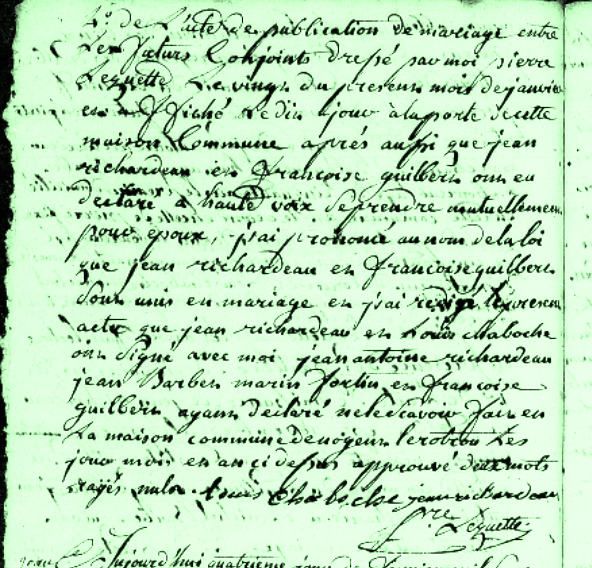 4o. de L'acte de publication de mariage entre
Les futurs Conjoints dressé par moi pierre
Lequette Le vingt du present mois de janvier
et affiché Ledit jour a la porte de cette
maison Commune aprés aussi que jean
richardeau et francoise guilbert ont eu
declaré a haute voix se prendre mutuellement
pour epoux, j'ai prononcé au nom de la loi
que jean richardeau et francoise guilbert
Sont unis en mariage et j'ai redigé le present
acte que jean richardeau et Louis chaboche
ont Signé avec moi jean antoine richardeau
jean Barbet marin fortin et francoise
guilbert ayant declaré ne le scavoir fait en
La maison commune de nogent le rotrou Les
jour mois et an ci dessus approuvé deux mots
rayés nuls Louis Chaboche jean richardeau
pre Lequette
Aujourd'hui quatrieme jour de